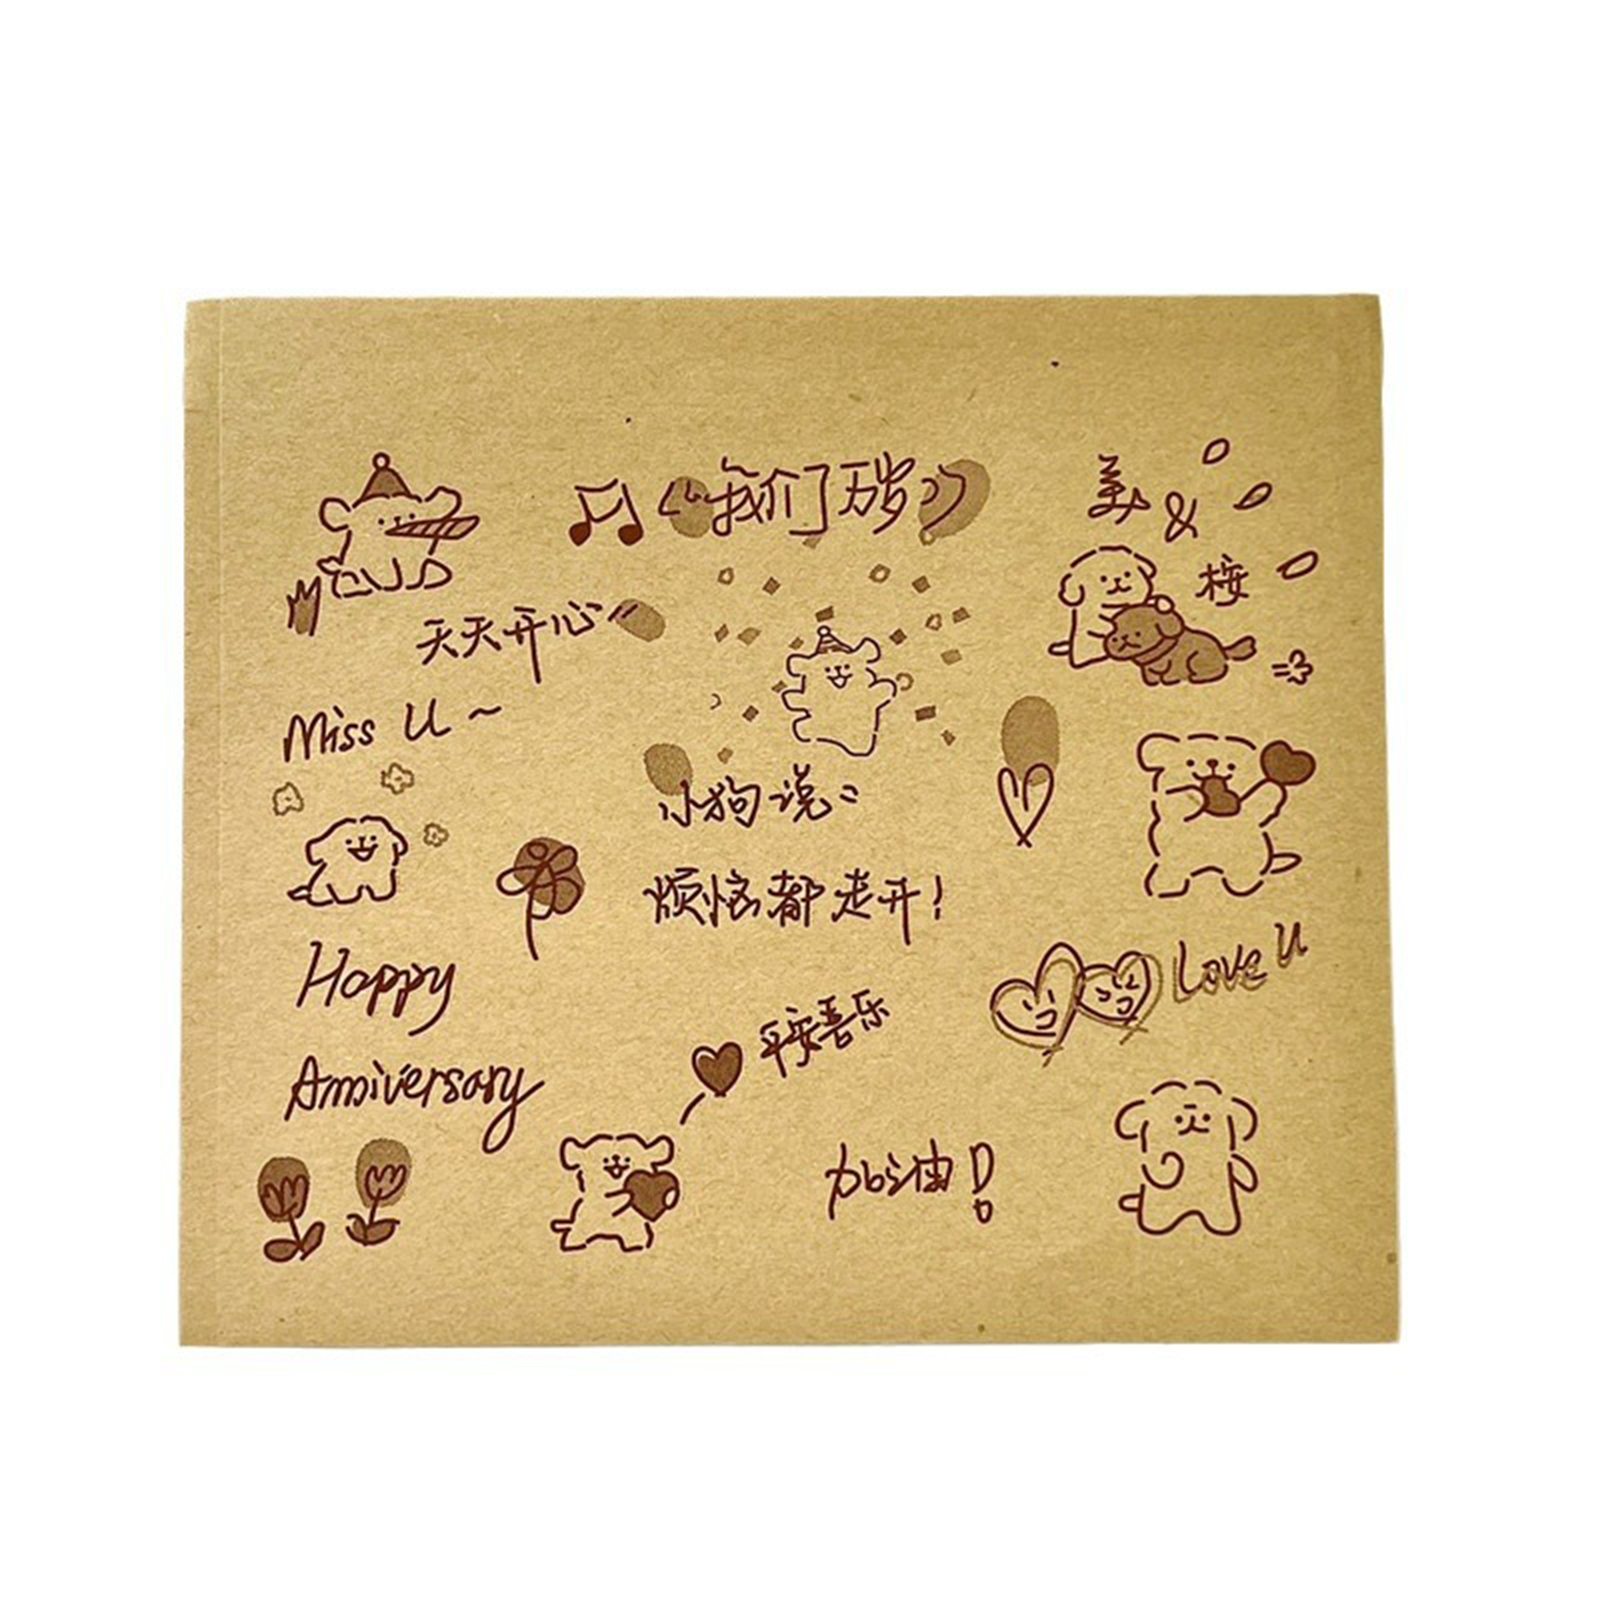 《我们万岁》
美&
桉
天天开心
Miss U ~
小狗说:
烦恼都走开!
Happy
Love U
平安喜乐
Anniversary
加油!